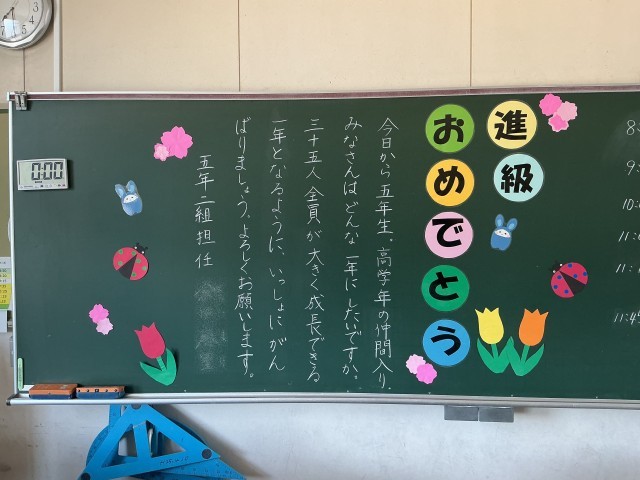 進級
おめでとう
今日から五年生。高学年の仲間入り。
みなさんはどんな一年にしたいですか。
三十五人全員が大きく成長できる
一年となるように、いっしょにがん
ばりましょう。よろしくお願いします。
五年二組担任
0:00